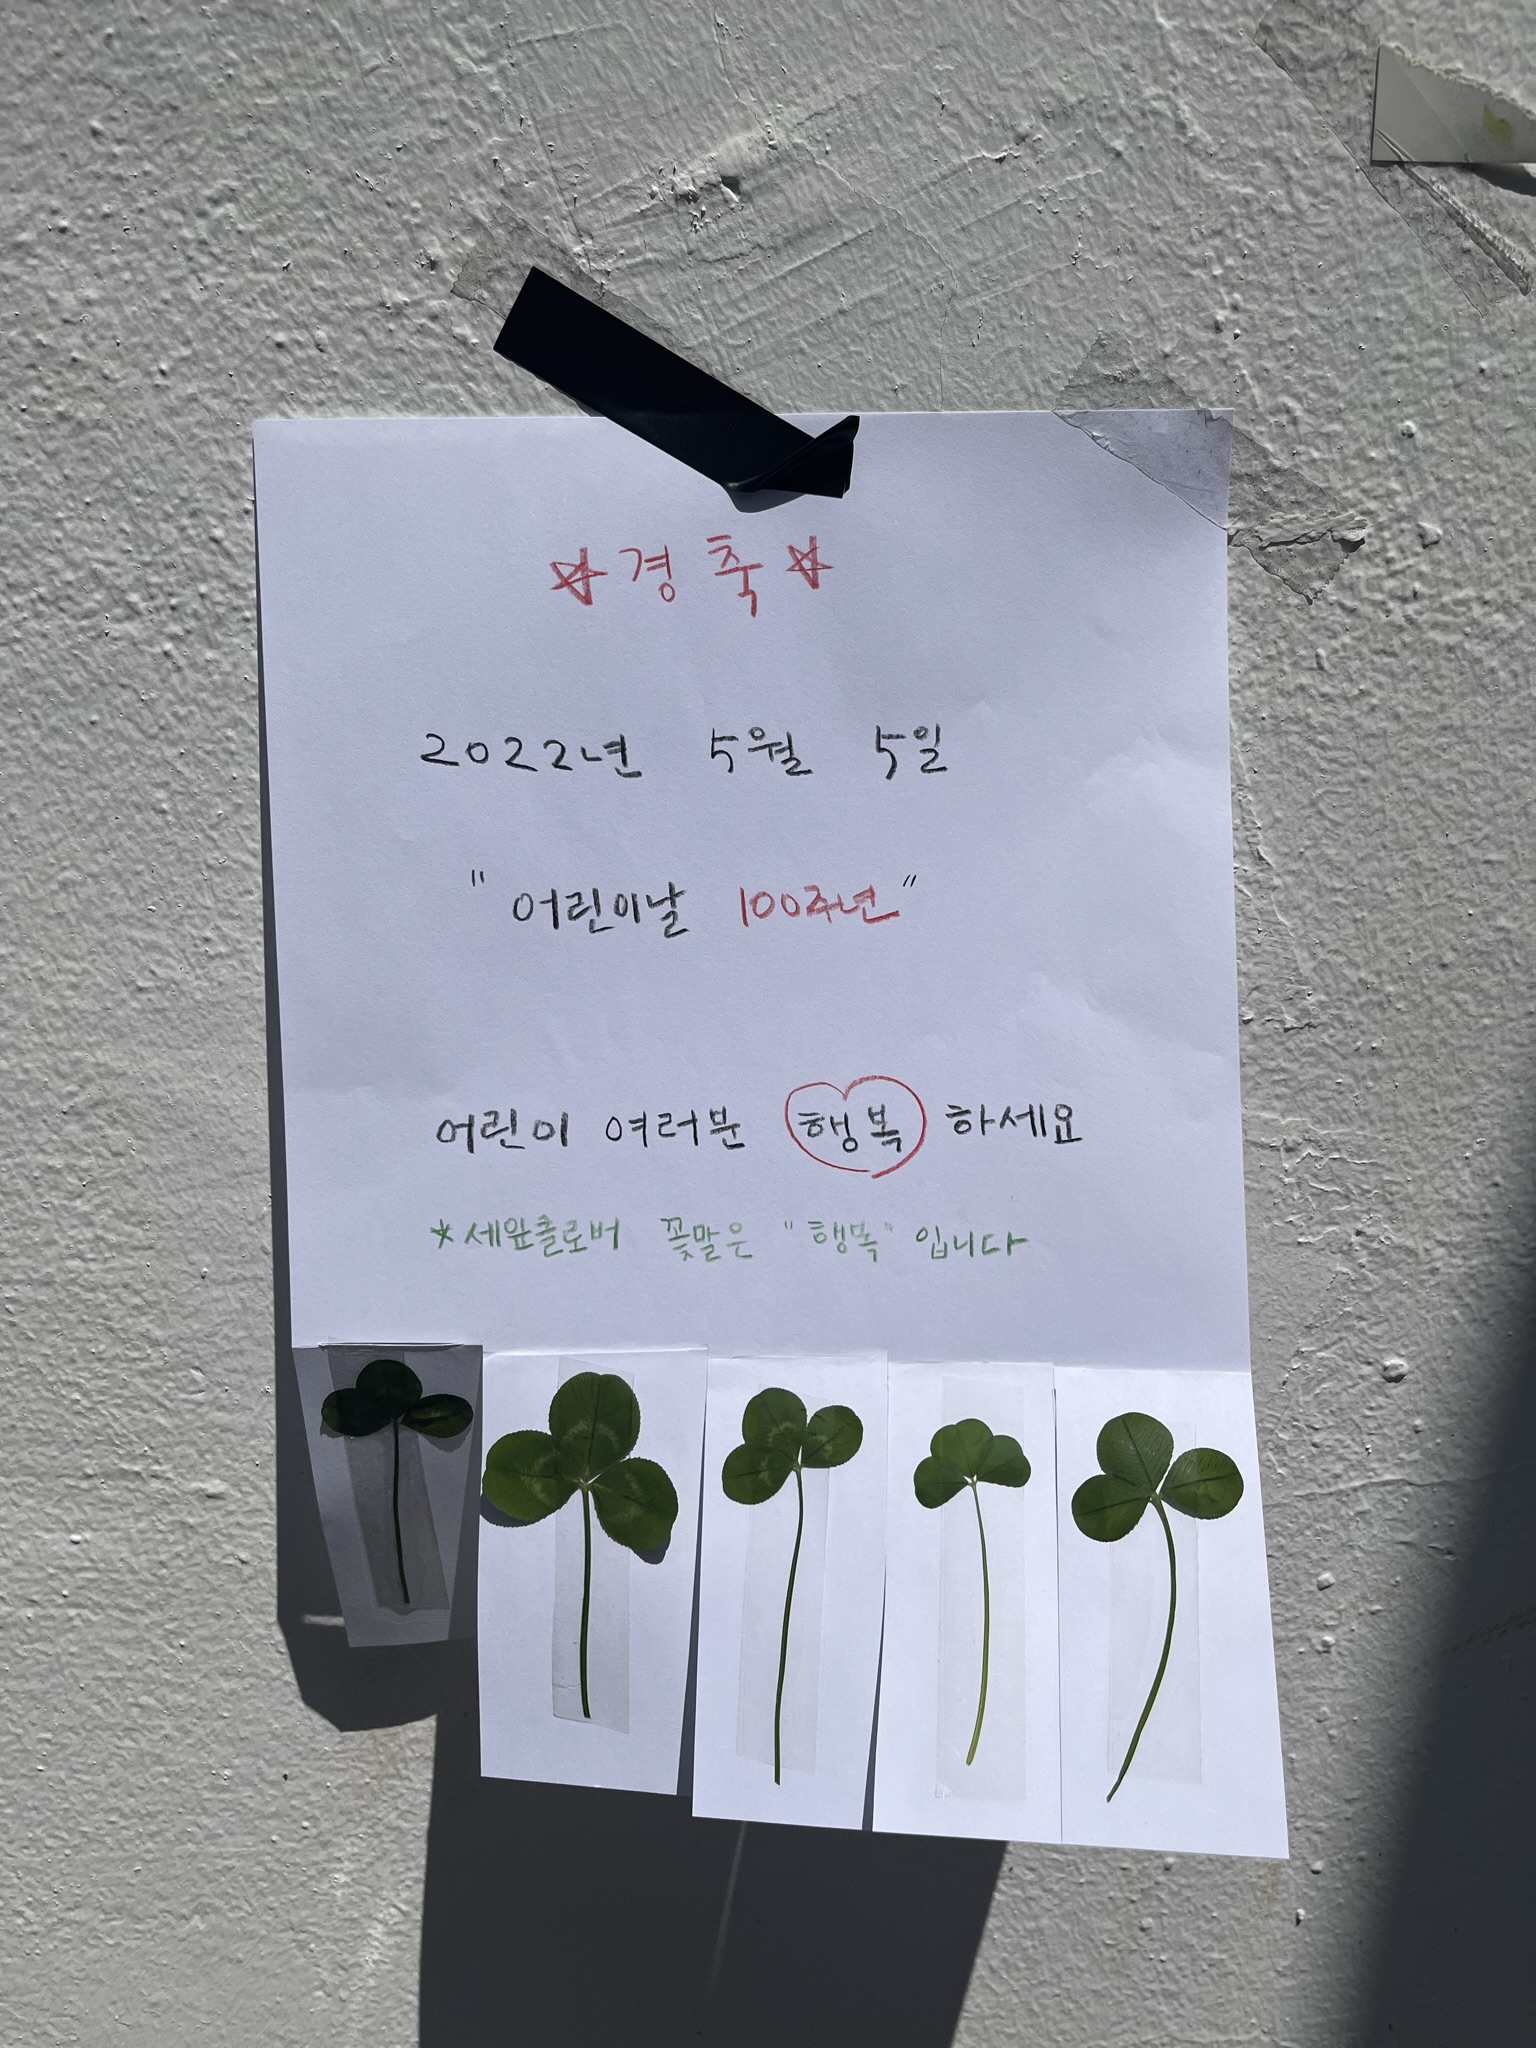 ☆경축☆
2022년 5월 5일
"어린이날 100주년"
어린이 여러분 행복 하세요
*세잎클로버 꽃말은 "행복" 입니다